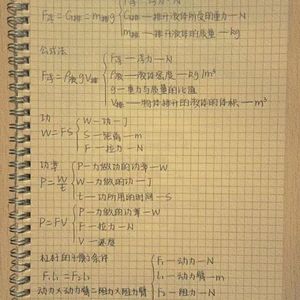 F浮—浮力—N
F浮=G排=m排g G排—排开液体所受的重力—N
m排—排开液体的质量—kg
公式法
F浮—浮力—N
F浮=ρ液gV排 ρ液—液体密度—kg/m³
g—重力与质量的比值
V排—物体排开的液体的体积—m³
功
W=FS W—功—J
S—距离—m
F—拉力—N
功率 P—力做功的功率—W
P=W/t W—力做的功—J
t—功所用的时间—S
P=FV P—力做的功率—W
F—拉力—N
V—速度
杠杆的平衡条件 F₁—动力—N
F₁l₁=F₂l₂ l₁—动力臂—m
动力×动力臂=阻力×阻力臂 F₂—阻力—N